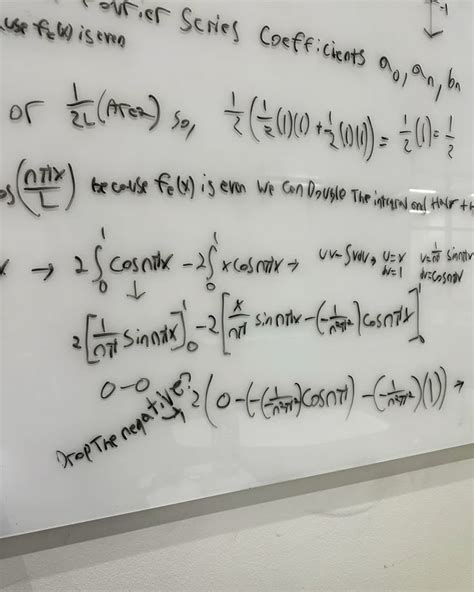 Fourier Series Coefficients a₀, aₙ, bₙ
-1
cause f_E(x) is even
or 1/2L (Area) so, 1/2 (1/2(1)(1) + 1/2(1)(1)) = 1/2(1) = 1/2
os(nπx/L) because f_E(x) is even we can Double The integral and Half
x → 2∫₀¹ cosnπx - 2∫₀¹ xcosnπx → uv-∫vdu, u=x v=1/nπ sinnπx
du=1 dv=cosnπx
↓
2[1/nπ sinnπx]₀¹ - 2[x/nπ sinnπx - (-1/n²π²)cosnπx]₀¹
0-0
Drop The negative? → 2(0-(-(1/n²π²)cosnπ) - (-1/n²π²)(1)) →